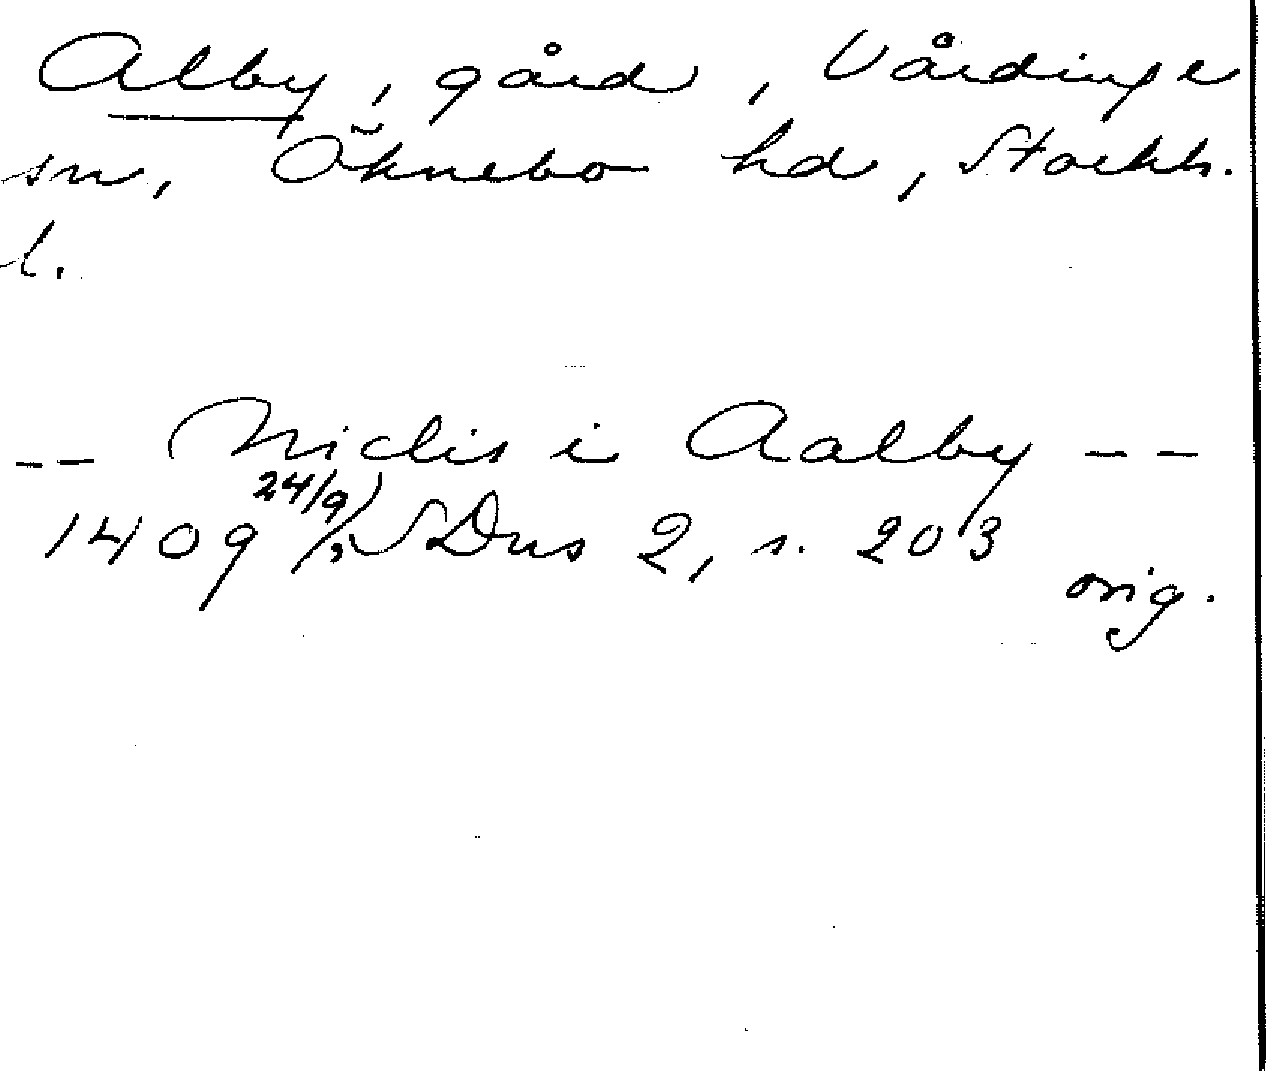 Alby, gård, Vårdinge
sn, Öknebo hd, Stockh.
l.
-- Niclis i Aalby --
1409 24/9 SDns 2, s. 203
orig.